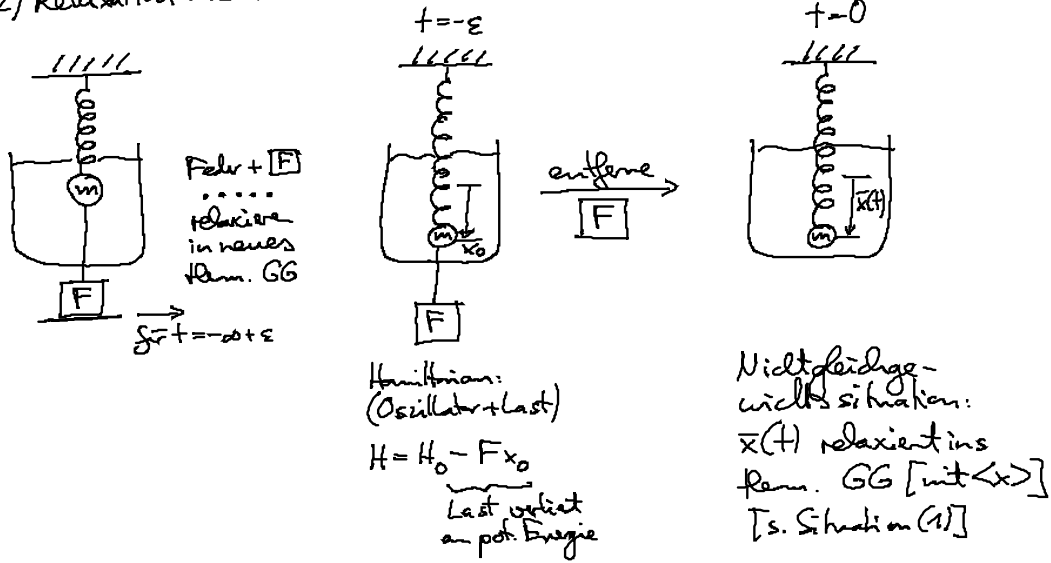 2) Relaxation
m
F
für t = -∞ + ε
Feder + F
.....
relaxiere
in neues
therm. GG
t = -ε
m
x̄₀
F
Hamiltonian:
(Oszillator + Last)
H = H₀ - F x₀
Last verliert
an pot. Energie
entferne
F
t = 0
x̄(t)
m
Nichtgleichge-
wichtssituation:
x̄(t) relaxiert ins
therm. GG [mit <x>]
[s. Situation (1)]